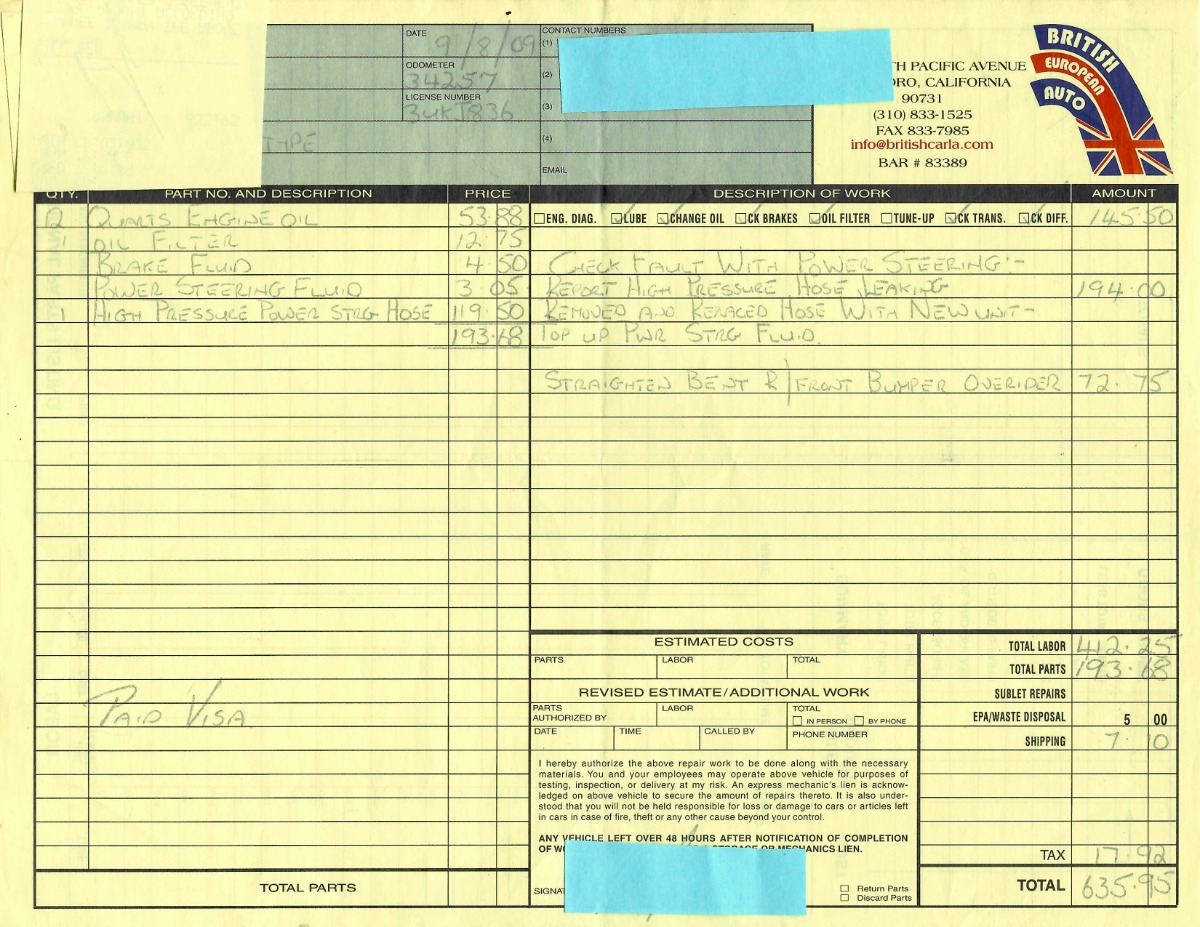 DATE 9/8/09
ODOMETER 34257
LICENSE NUMBER 3UKJ836
CONTACT NUMBERS
(1)
(2)
(3)
(4)
EMAIL
TH PACIFIC AVENUE
RO, CALIFORNIA
90731
(310) 833-1525
FAX 833-7985
info@britishcarla.com
BAR # 83389
BRITISH
EUROPEAN
AUTO
QTY. PART NO. AND DESCRIPTION PRICE DESCRIPTION OF WORK AMOUNT
QUARTS ENGINE OIL 53.88 ENG. DIAG. LUBE CHANGE OIL CK BRAKES OIL FILTER TUNE-UP CK TRANS. CK DIFF. 145 50
1 OIL FILTER 12.75
BRAKE FLUID 4.50 CHECK FAULT WITH POWER STEERING:-
POWER STEERING FLUID 3.05 REPORT HIGH PRESSURE HOSE LEAKING 194.00
1 HIGH PRESSURE POWER STRG HOSE 119.50 REMOVED AND REPLACED HOSE WITH NEW UNIT-
193.68 TOP UP PWR STRG FLUID.
STRAIGHTEN BENT R/FRONT BUMPER OVERIDER 72.75
PAID VISA
ESTIMATED COSTS
PARTS LABOR TOTAL
REVISED ESTIMATE/ADDITIONAL WORK
PARTS LABOR TOTAL
AUTHORIZED BY IN PERSON BY PHONE
DATE TIME CALLED BY PHONE NUMBER
I hereby authorize the above repair work to be done along with the necessary
materials. You and your employees may operate above vehicle for purposes of
testing, inspection, or delivery at my risk. An express mechanic's lien is acknow-
ledged on above vehicle to secure the amount of repairs thereto. It is also under-
stood that you will not be held responsible for loss or damage to cars or articles left
in cars in case of fire, theft or any other cause beyond your control.
ANY VEHICLE LEFT OVER 48 HOURS AFTER NOTIFICATION OF COMPLETION
OF STORAGE OR MECHANICS LIEN.
SIGNAT
Return Parts
Discard Parts
TOTAL LABOR 412.25
TOTAL PARTS 193.68
SUBLET REPAIRS
EPA/WASTE DISPOSAL 5 00
SHIPPING 7.10
TAX 17.92
TOTAL 635.95
TOTAL PARTS